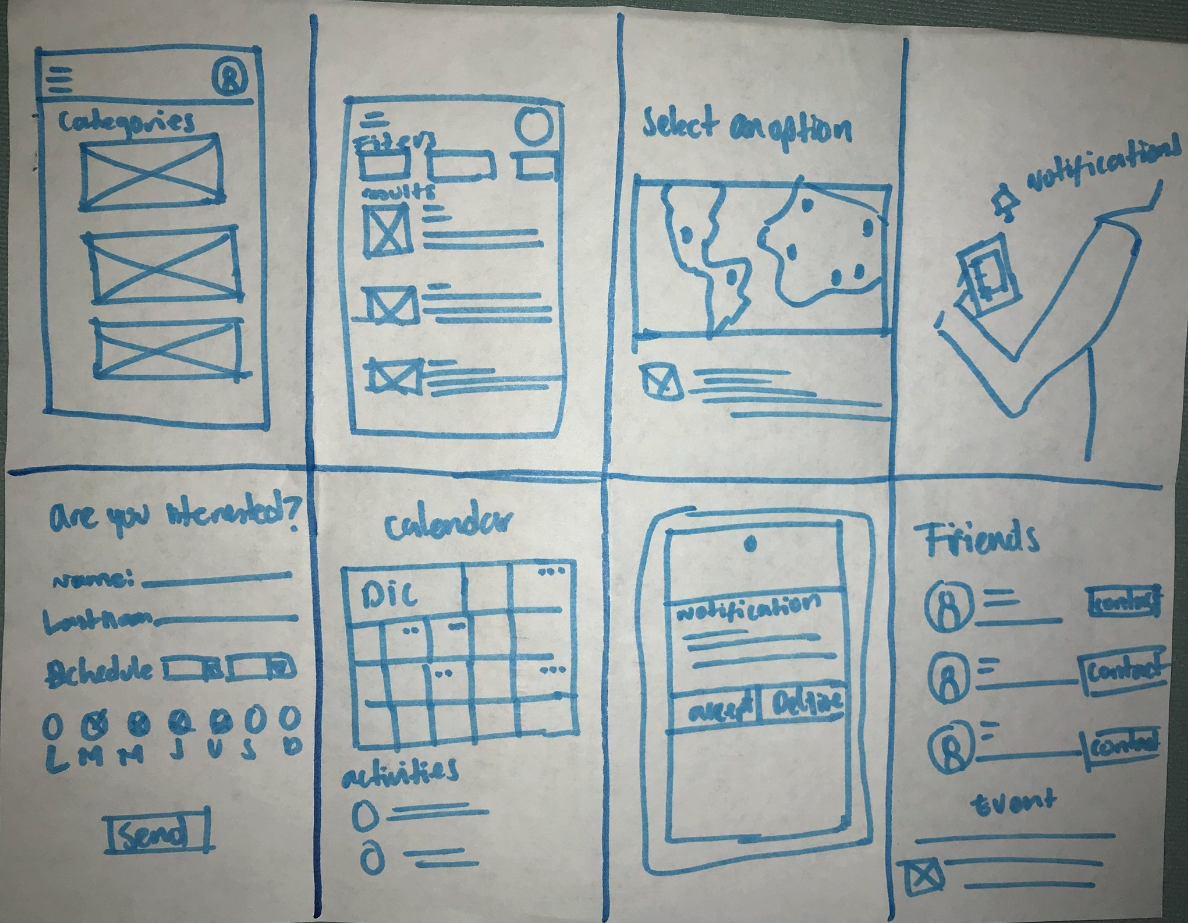 Categories
Filters
results
Select an option
notifications
Are you interested?
Name:
Last Nam
Schedule
L M M J V S D
Send
Calendar
Dic
activities
Notification
accept Decline
Friends
contact
contact
contact
Event